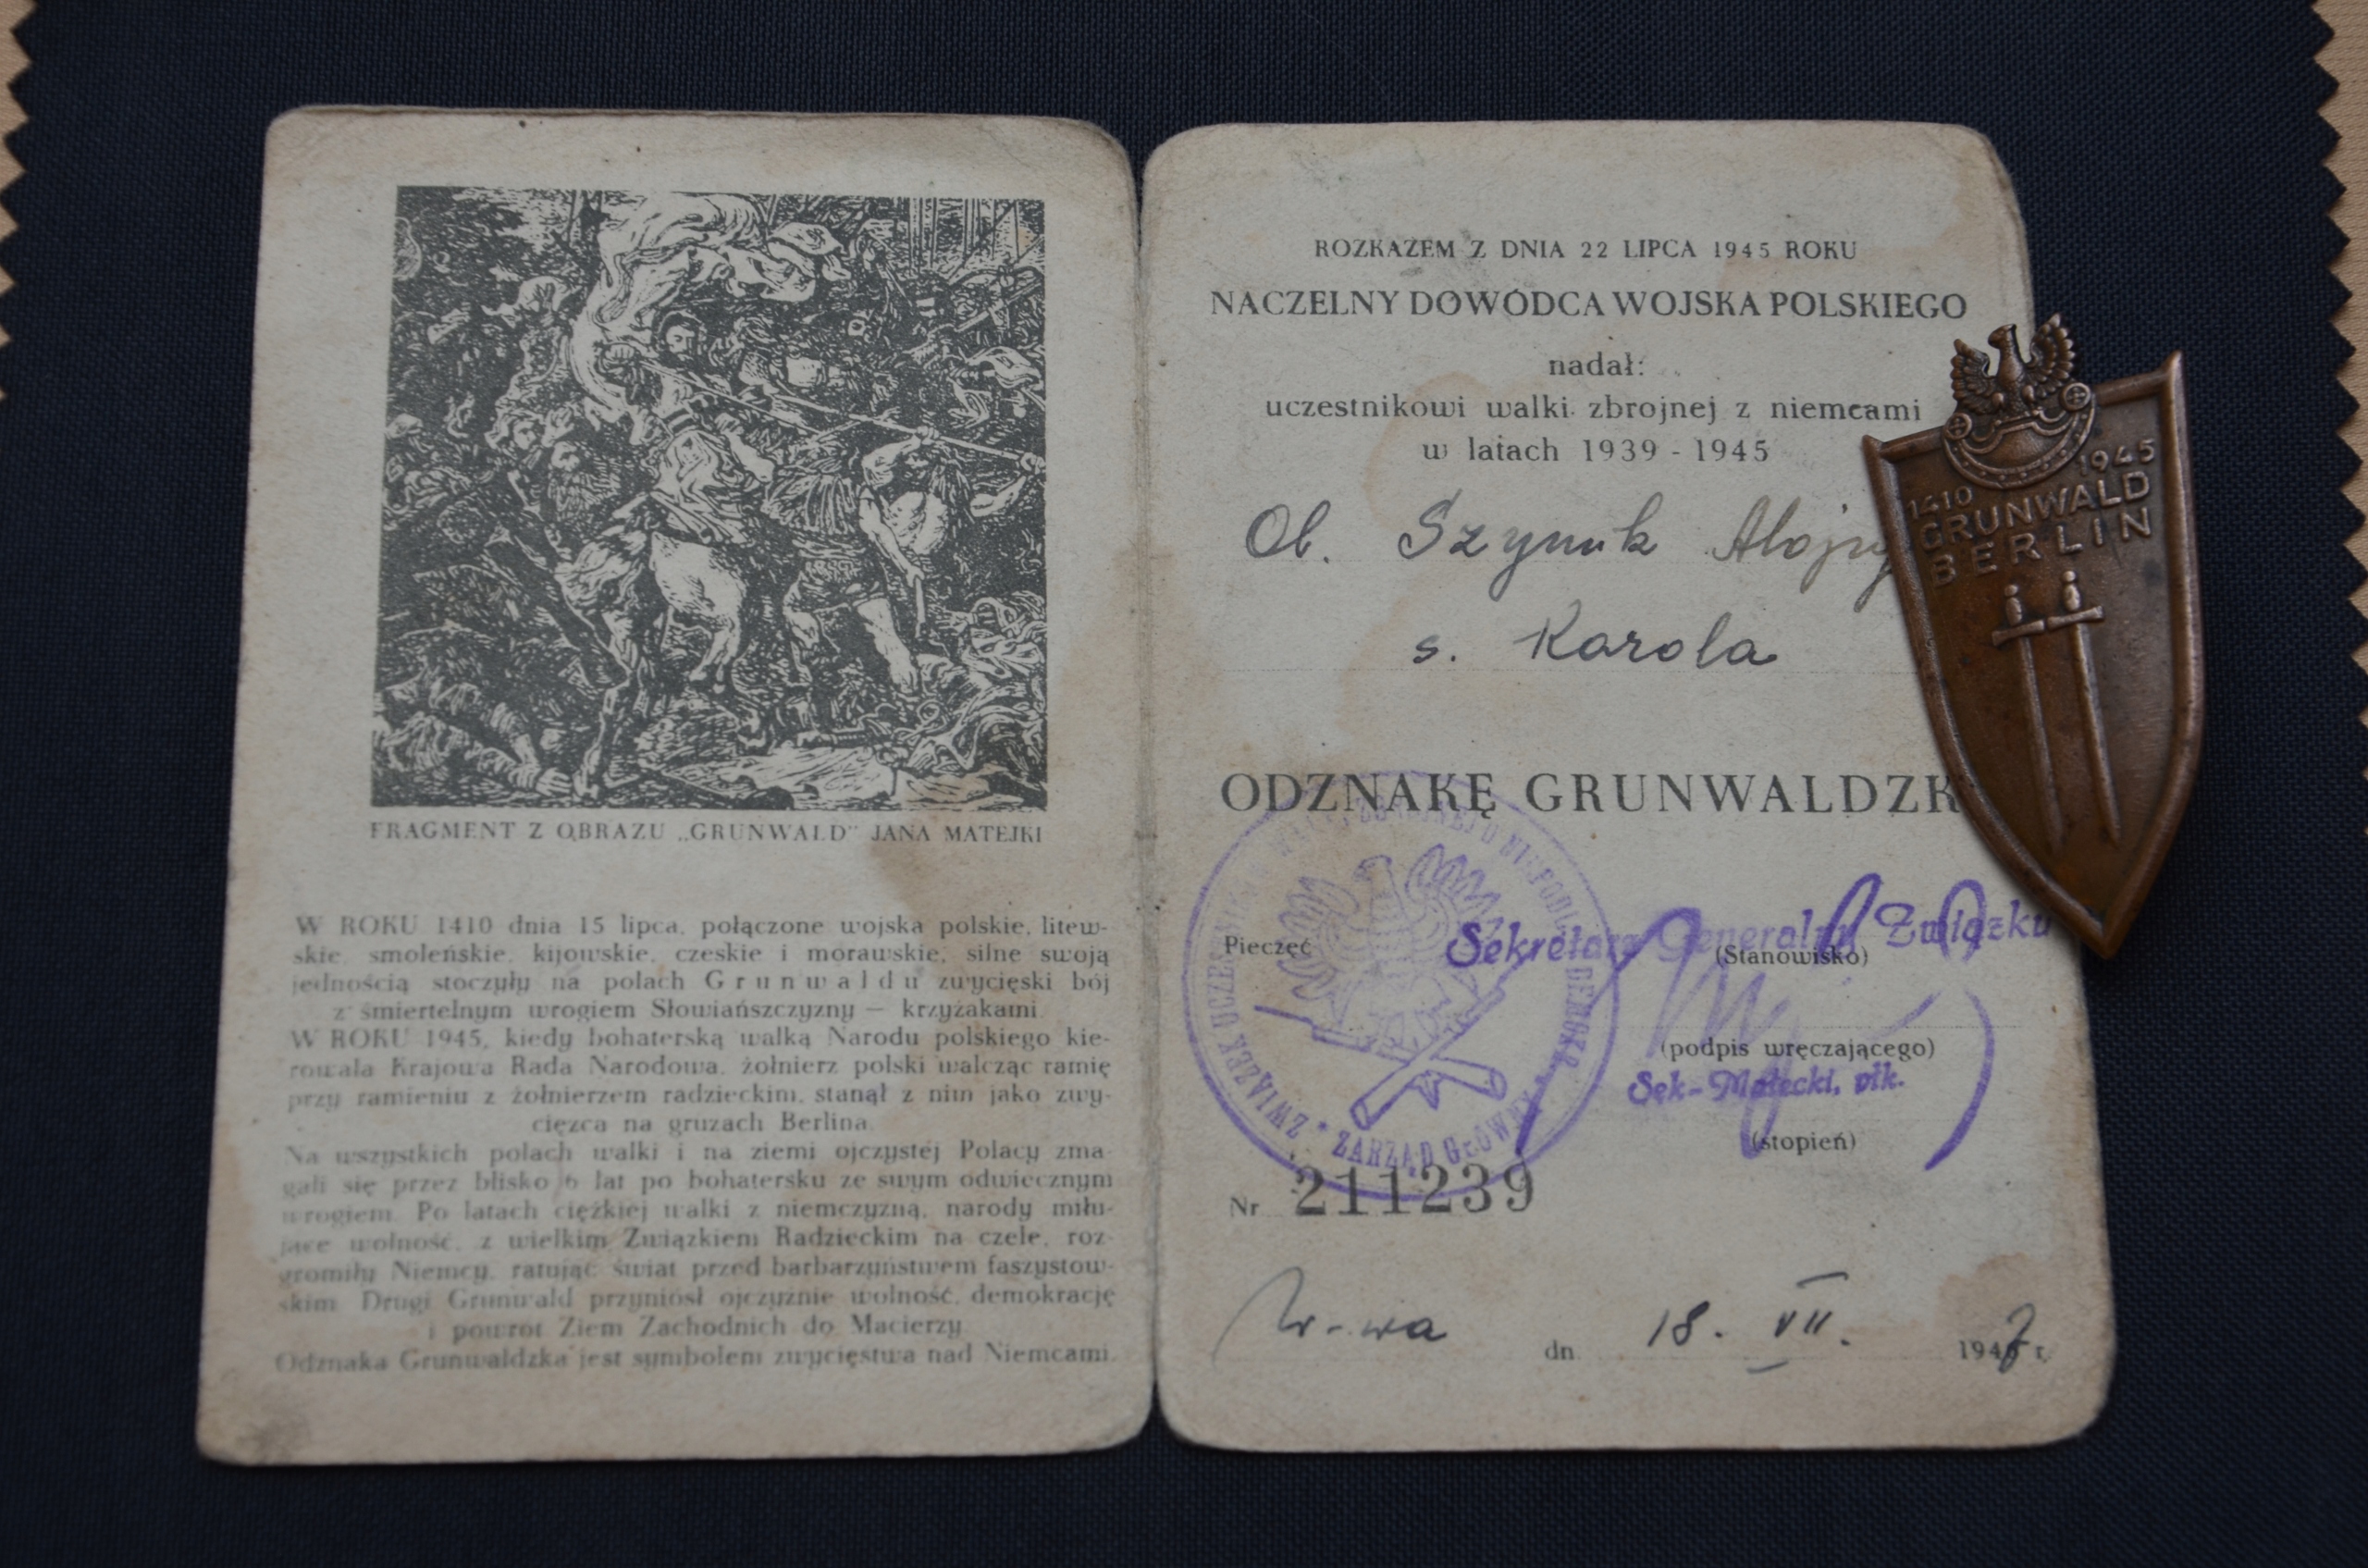 FRAGMENT Z OBRAZU „GRUNWALD" JANA MATEJKI
W ROKU 1410 dnia 15 lipca, połączone wojska polskie, litew-
skie, smoleńskie, kijowskie, czeskie i morawskie, silne swoją
jednością stoczyły na polach Grunwaldu zwycięski bój
z śmiertelnym wrogiem Słowiańszczyzny — krzyżakami.
W ROKU 1945, kiedy bohaterską walką Narodu polskiego kie-
rowała Krajowa Rada Narodowa, żołnierz polski walcząc ramię
przy ramieniu z żołnierzem radzieckim, stanął z nim jako zwy-
cięzca na gruzach Berlina.
Na wszystkich polach walki i na ziemi ojczystej Polacy zma-
gali się przez blisko 6 lat po bohatersku ze swym odwiecznym
wrogiem. Po latach ciężkiej walki z niemczyzną, narody miłu-
jące wolność, z wielkim Związkiem Radzieckim na czele, roz-
gromiły Niemcy, ratując świat przed barbarzyństwem faszystow-
skim. Drugi Grunwald przyniósł ojczyźnie wolność, demokrację
i powrót Ziem Zachodnich do Macierzy.
Odznaka Grunwaldzka jest symbolem zwycięstwa nad Niemcami.
ROZKAZEM Z DNIA 22 LIPCA 1945 ROKU
NACZELNY DOWÓDCA WOJSKA POLSKIEGO
nadał:
uczestnikowi walki zbrojnej z niemcami
w latach 1939 - 1945
Ob. Szymik Alojzy
s. Karola
ODZNAKĘ GRUNWALDZK
Pieczęć
Sekretarz Generalny Związku
(Stanowisko)
(podpis wręczającego)
Sęk-Małecki, płk.
(stopień)
ZWIĄZEK UCZESTNIKÓW WALKI ZBROJNEJ O NIEPODL. DEMOKR.
* ZARZĄD GŁÓWNY *
Nr 211239
W-wa dn. 18. VII. 1947 r.
1410 1945
GRUNWALD
BERLIN